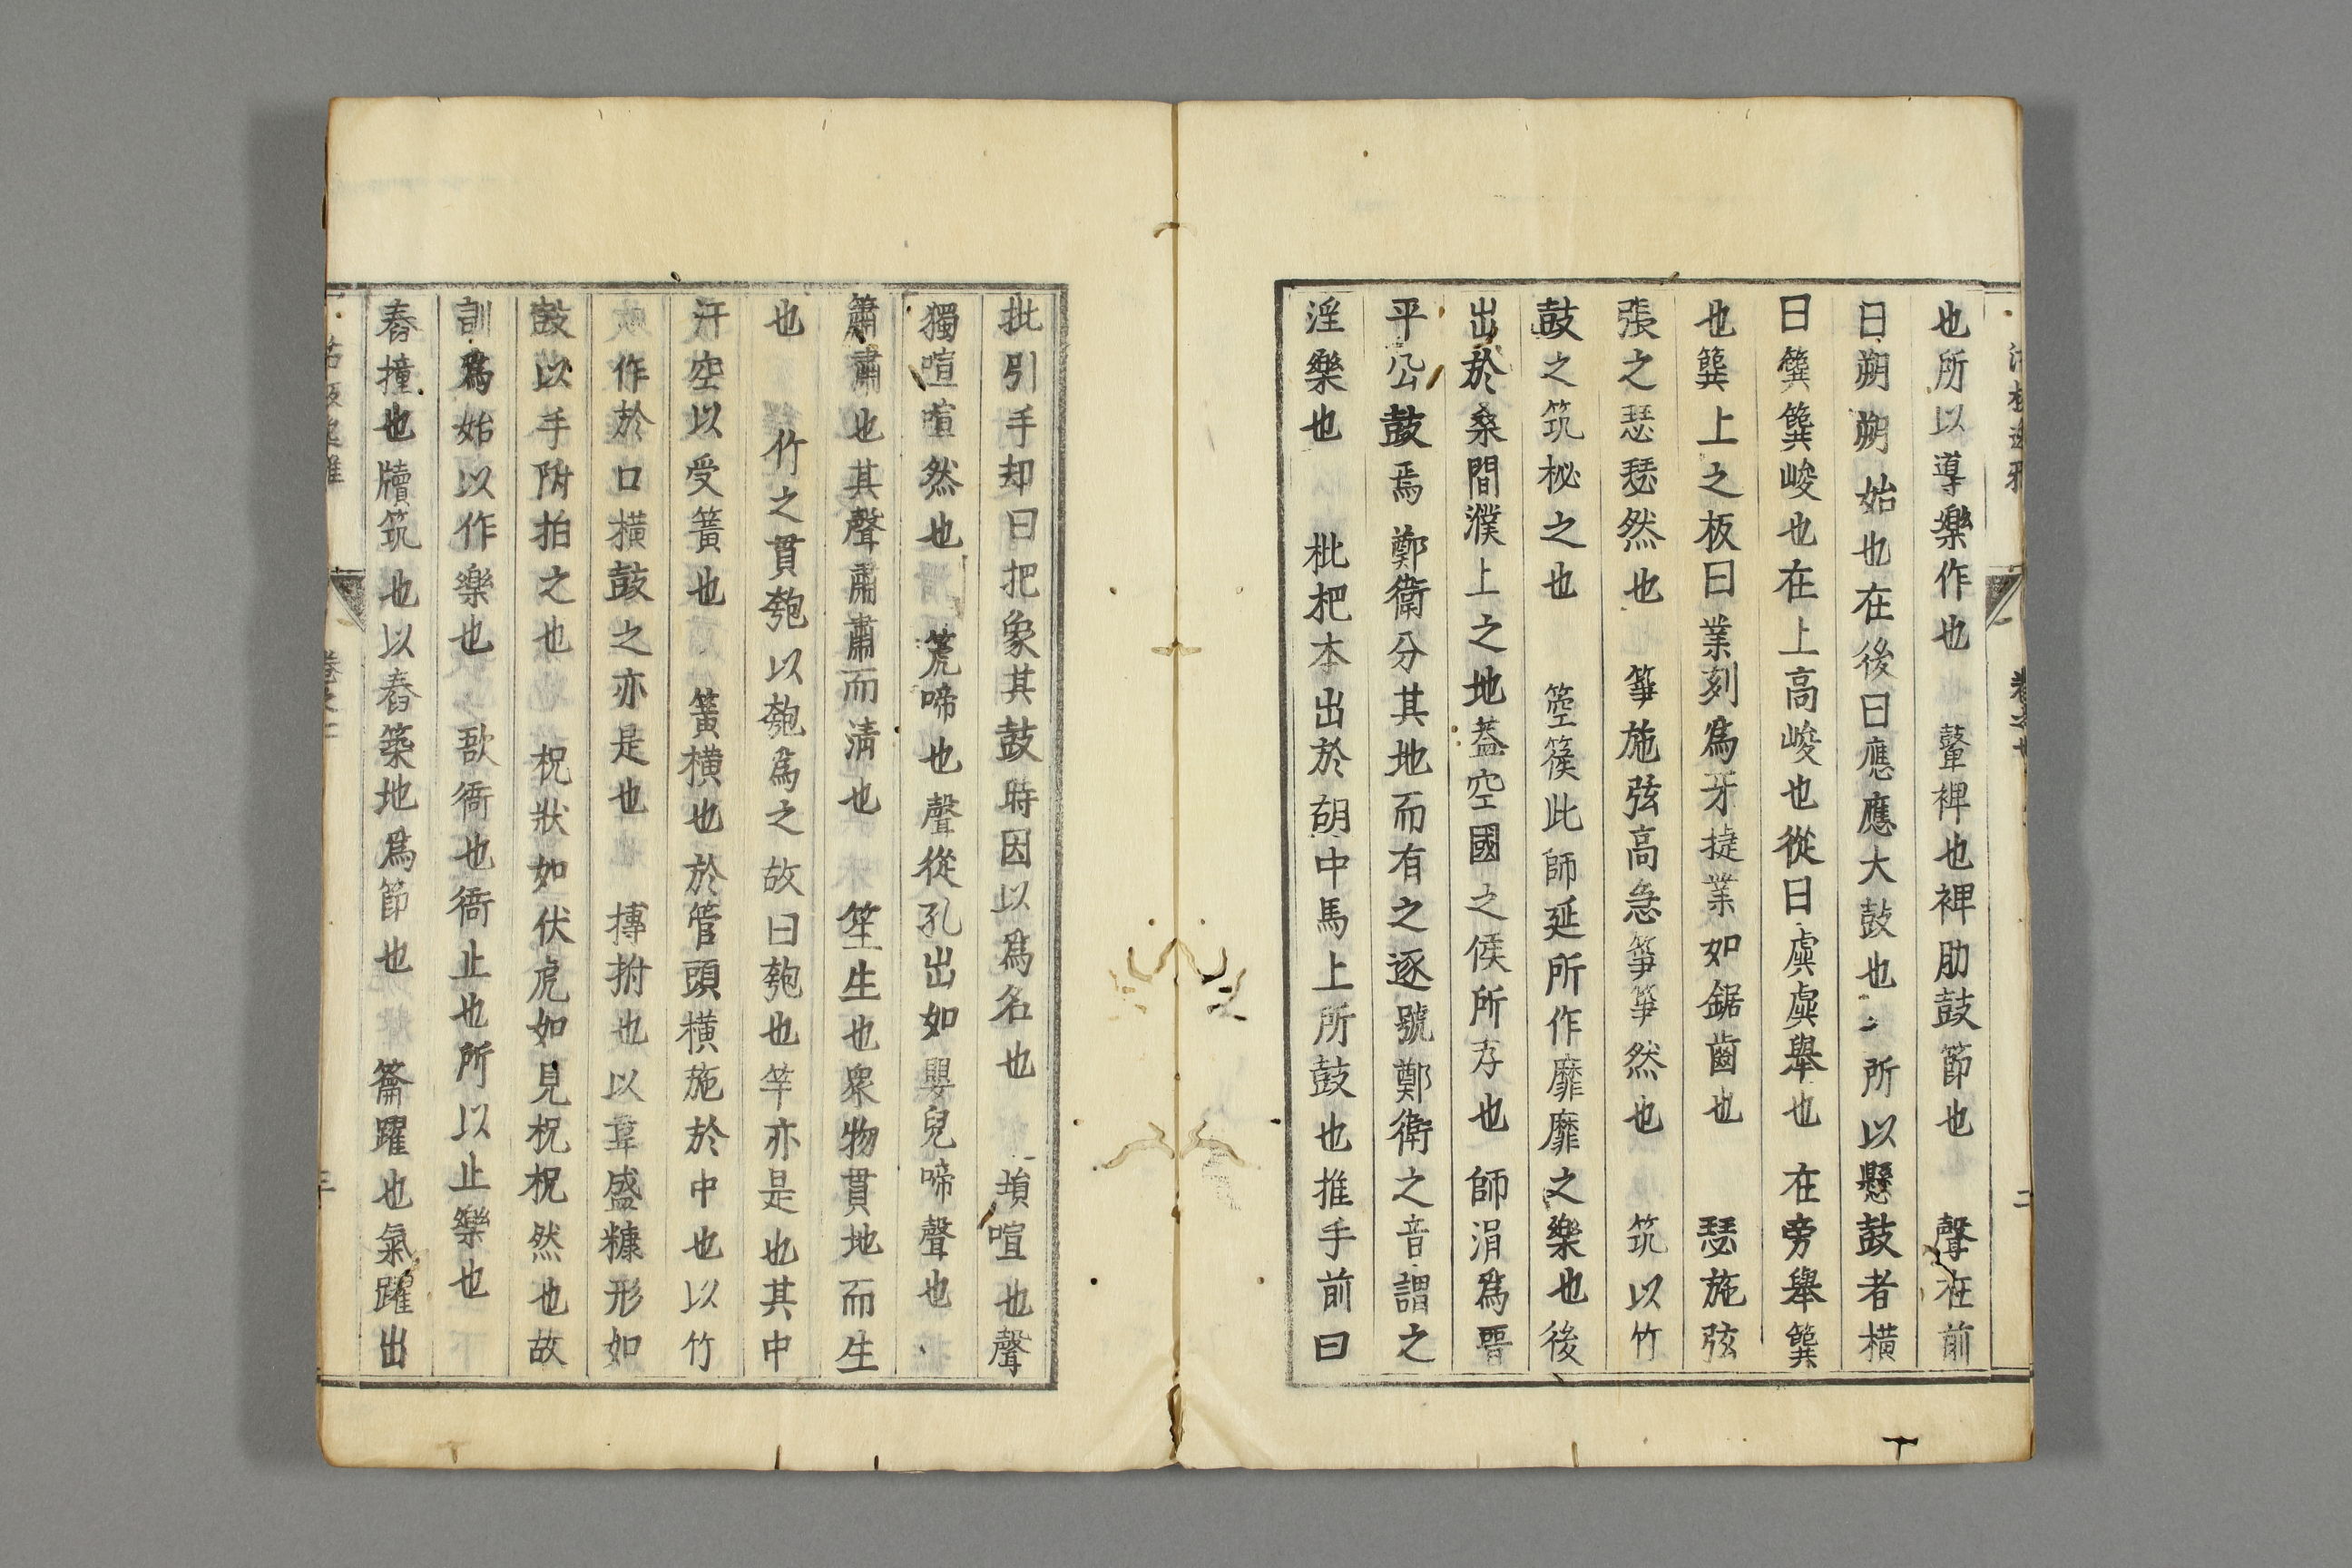 也所以導樂作也 鼙裨也裨助鼓節也 聲在前
曰朔朔始也在後曰應應大鼓也 所以懸鼓者橫
曰簨簨峻也在上高峻也從曰虡虡舉也 在旁舉簨
也簨上之板曰業刻爲牙捷業如鋸齒也 瑟施弦
張之瑟瑟然也 箏施弦高急箏箏然也 筑以竹
鼓之筑柲之也 箜篌此師延所作靡靡之樂也後
出於桑間濮上之地葢空國之侯所存也 師涓爲晉
平公鼓焉 鄭衞分其地而有之逐號鄭衞之音謂之
淫樂也 枇杷本出於胡中馬上所鼓也推手前曰
批引手却曰把象其鼓時因以爲名也 塤喧也聲
獨喧喧然也 箎啼也聲從孔出如嬰兒啼聲也
簫肅也其聲肅肅而清也 笙生也衆物貫地而生
也 竹之貫匏以匏爲之故曰匏也竽亦是也其中
汙空以受簧也 簧橫也於管頭橫施於中也以竹
作於口橫鼓之亦是也 搏拊也以韋盛糠形如
鼓以手附拍之也 柷狀如伏虎如見柷柷然也故
訓爲始以作樂也 敔衙也衙止也所以止樂也
舂撞也牘筑也以舂築地爲節也 籥躍也氣躍出